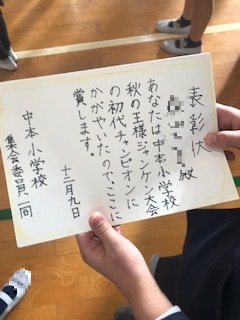 表彰状
殿
あなたは中本小学校
秋の王様ジャンケン大会
の初代チャンピオンに
かがやいたので、ここに
賞します。
十二月九日
中本小学校
集会委員一同